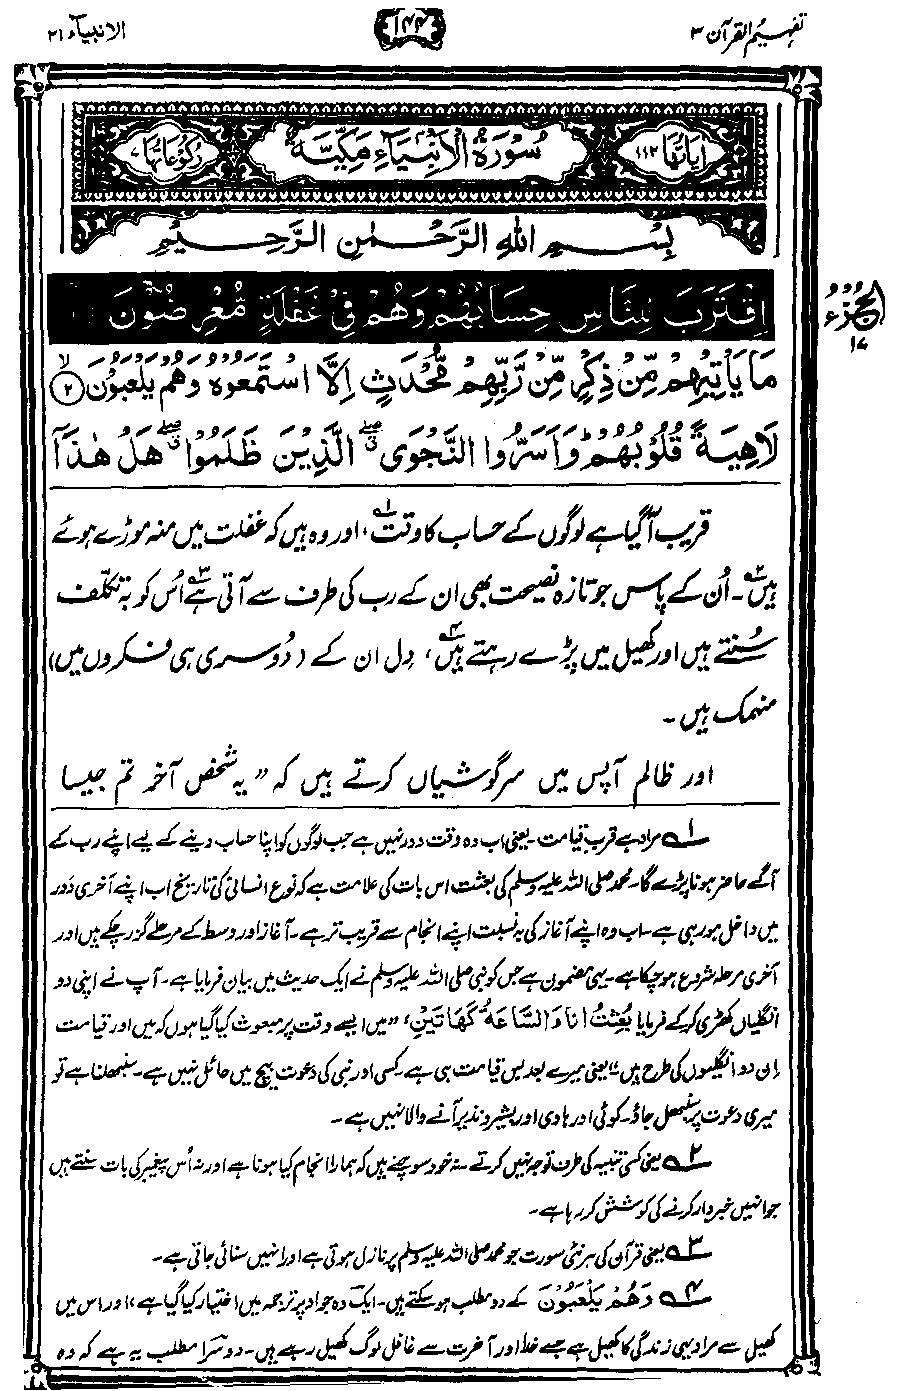 تفہیم القرآن ۳
۱۴۴
الانبیاء ۲۱
اٰیَاتُهَا ۱۱۲
سُوْرَةُ الْاَنْبِيَآءِ مَكِّيَّةٌ
رُكُوْعَاتُهَا ۷
بِسْمِ اللهِ الرَّحْمٰنِ الرَّحِيْمِ
اِقْتَرَبَ لِلنَّاسِ حِسَابُهُمْ وَهُمْ فِيْ غَفْلَةٍ مُّعْرِضُوْنَ
الجزء ۱۷
مَا يَأْتِيْهِمْ مِّنْ ذِكْرٍ مِّنْ رَّبِّهِمْ مُّحْدَثٍ اِلَّا اسْتَمَعُوْهُ وَهُمْ يَلْعَبُوْنَ ۲ لا
لَاهِيَةً قُلُوْبُهُمْ ؕ وَاَسَرُّوا النَّجْوَى ۖ الَّذِيْنَ ظَلَمُوْا ۖ هَلْ هٰذَآ
قریب آگیا ہے لوگوں کے حساب کا وقت۱، اور وہ ہیں کہ غفلت میں منہ موڑے ہوئے
ہیں۲۔ اُن کے پاس جو تازہ نصیحت بھی ان کے رب کی طرف سے آتی ہے۳ اُس کو بہ تکلّف
سُنتے ہیں اور کھیل میں پڑے رہتے ہیں۴، دِل ان کے (دُوسری ہی فکروں میں)
منہمک ہیں۔
اور ظالم آپس میں سرگوشیاں کرتے ہیں کہ ”یہ شخص آخر تم جیسا
۱؎ مراد ہے قربِ قیامت۔ یعنی اب وہ وقت دور نہیں ہے جب لوگوں کو اپنا حساب دینے کے لیے اپنے رب کے
آگے حاضر ہونا پڑے گا۔ محمد صلی اللہ علیہ وسلم کی بعثت اس بات کی علامت ہے کہ نوعِ انسانی کی تاریخ اب اپنے آخری دَور
میں داخل ہو رہی ہے۔ اب وہ اپنے آغاز کی بہ نسبت اپنے انجام سے قریب تر ہے۔ آغاز اور وسط کے مرحلے گزر چکے ہیں اور
آخری مرحلہ شروع ہو چکا ہے۔ یہی مضمون ہے جس کو نبی صلی اللہ علیہ وسلم نے ایک حدیث میں بیان فرمایا ہے۔ آپ نے اپنی دو
انگلیاں کھڑی کر کے فرمایا بُعِثْتُ اَنَا وَالسَّاعَةُ كَهَاتَيْنِ، ”میں ایسے وقت پر مبعوث کیا گیا ہوں کہ میں اور قیامت
اِن دو انگلیوں کی طرح ہیں“ یعنی میرے بعد بس قیامت ہی ہے۔ کسی اور نبی کی دعوت بیچ میں حائل نہیں ہے۔ سنبھلنا ہے تو
میری دعوت پر سنبھل جاؤ۔ کوئی اور ہادی اور بشیر و نذیر آنے والا نہیں ہے۔
۲؎ یعنی کسی تنبیہ کی طرف توجہ نہیں کرتے۔ نہ خود سوچتے ہیں کہ ہمارا انجام کیا ہونا ہے اور نہ اُس پیغمبر کی بات سنتے ہیں
جو انہیں خبردار کرنے کی کوشش کر رہا ہے۔
۳؎ یعنی قرآن کی ہر نئی سورت جو محمد صلی اللہ علیہ وسلم پر نازل ہوتی ہے اور انہیں سنائی جاتی ہے۔
۴؎ وَهُمْ يَلْعَبُوْنَ کے دو مطلب ہو سکتے ہیں۔ ایک وہ جو اوپر ترجمہ میں اختیار کیا گیا ہے، اور اس میں
کھیل سے مراد یہی زندگی کا کھیل ہے جسے خدا اور آخرت سے غافل لوگ کھیل رہے ہیں۔ دوسرا مطلب یہ ہے کہ وہ